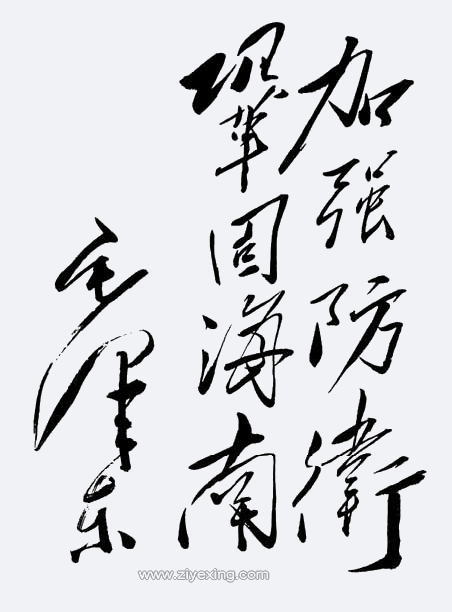 加强防衛
鞏固海南
毛泽东
www.ziyexing.com